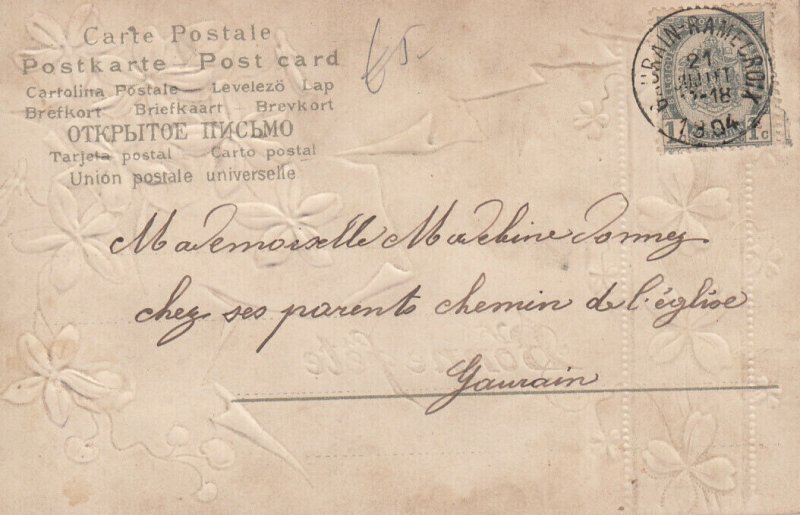 Carte Postale
Postkarte - Post card
Cartolina Postale - Levelező Lap
Brefkort - Briefkaart - Brevkort
ОТКРЫТОЕ ПИСЬМО
Tarjeta postal - Carto postal
Union postale universelle
GAURAIN-RAMECROIX
21
18
1904
1 1c
Mademoiselle
chez ses parents chemin de l'église
Gaurain
Bonne fête